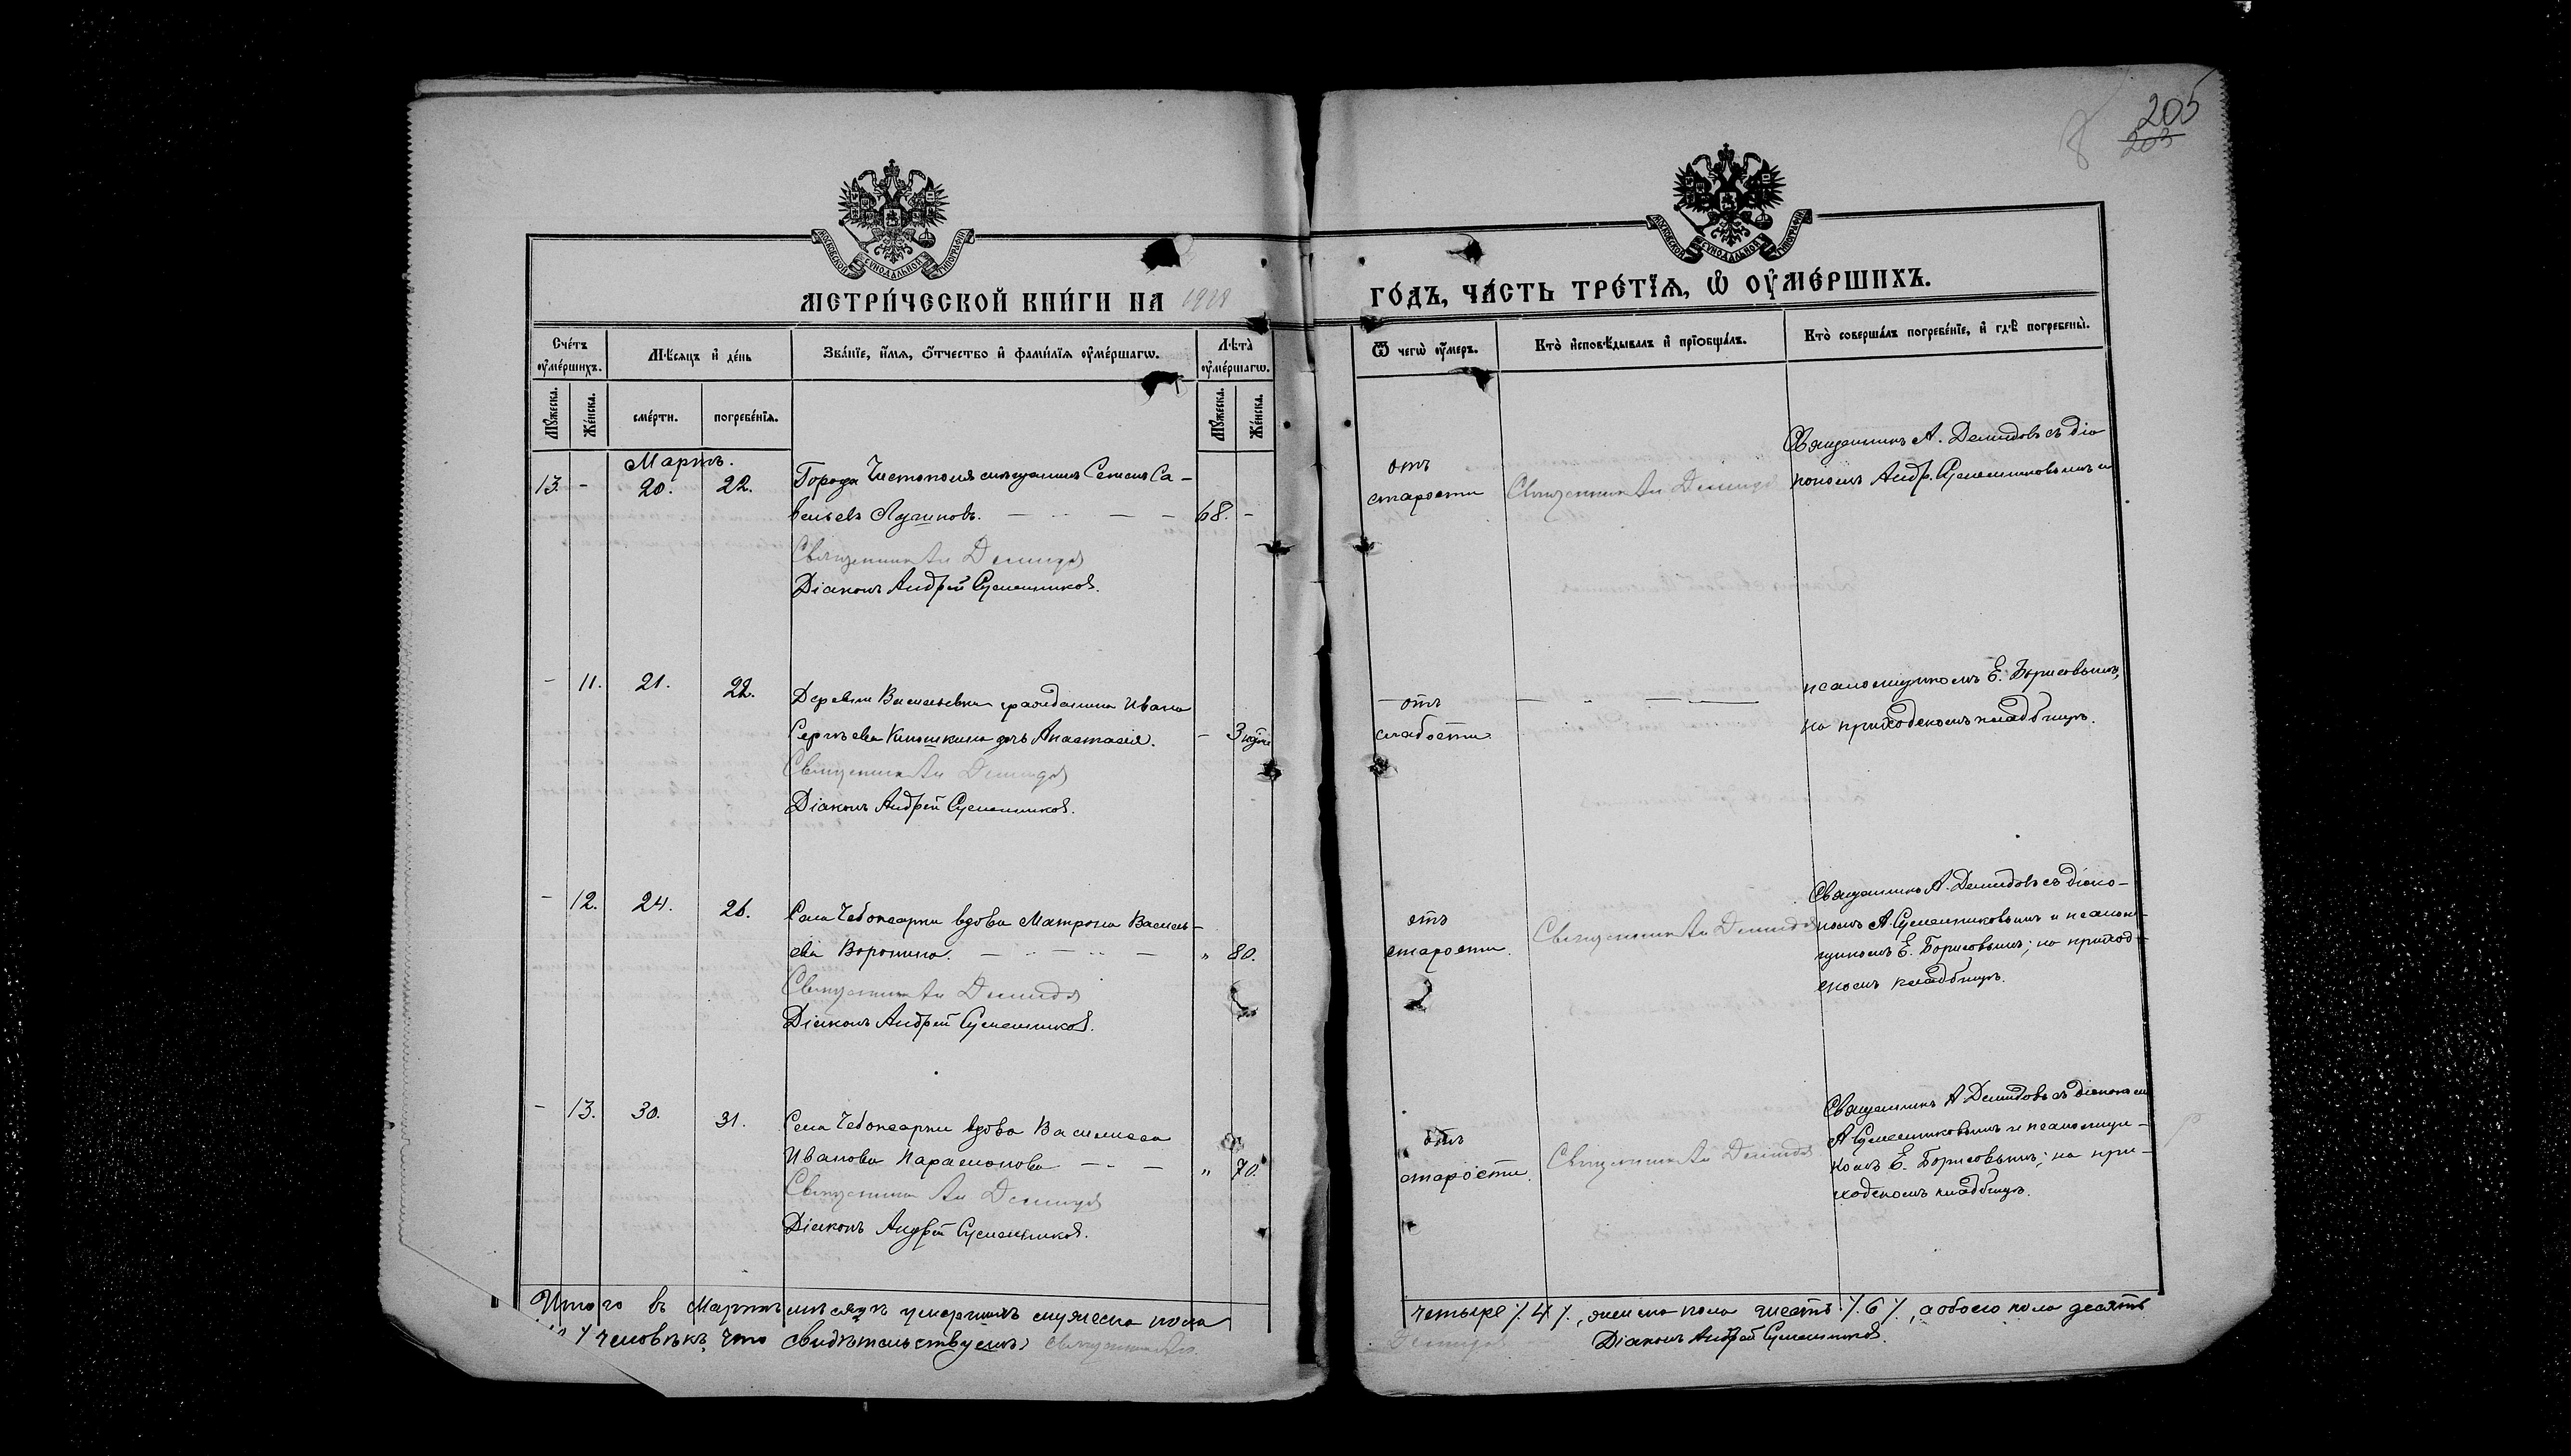 205
203
МЕТРИ́ЧЕСКОЙ КНИ́ГИ НА 1918
ГО́ДЪ, ЧА́СТЬ ТРЕ́ТЇѦ, Ѽ ОУМЕ́РШИХЪ.
МОСКОВСКОЙ СѴНОДАЛЬНОЙ ТИПОГРАФІИ
МОСКОВСКОЙ СѴНОДАЛЬНОЙ ТИПОГРАФІИ
Сче́тъ оуме́ршихъ.
Мꙋжеска. Же́нска.
Мѣсѧцъ и де́нь
сме́рти. погребе́нїѧ.
Зва́нїе, и҆́мѧ, ѻ҆́тчество и҆ фами́лїѧ оуме́ршагѡ.
Лѣта̀ оуме́ршагѡ.
Мꙋжеска. Же́нска.
Ѿ чегѡ̀ оу́меръ.
Кто̀ и҆сповѣ́дывалъ и҆ прїѡбща́лъ.
Кто̀ соверша́лъ погребе́нїе, и҆ гдѣ̀ погребены̀.
Мартъ.
13. - 20. 22. Города Чистополя мѣщанинъ Семенъ Са-
вельевъ Лушновъ. 68. -
Священникъ Ал Демидов
Діаконъ Андрей Сусленников.
отъ
старости
Священникъ Ал Демидов
Священникъ А. Демидовъ съ діа
кономъ Андр. Сусленниковымъ и
- 11. 21. 22. Деревни Васильевки гражданина Ивана
Сергѣева Кинашкина дочь Анастасія. - 3 нѣд
Священникъ Ал Демидов
Діаконъ Андрей Сусленников.
отъ
слабости
псаломщикомъ Е. Борисовымъ,
на приходскомъ кладбищѣ.
- 12. 24. 26. Села Чебоксарки вдова Матрона Василь-
ева Воронина. " 80.
Священникъ Ал Демидов
Діаконъ Андрей Сусленников.
отъ
старости.
Священникъ Ал Демидов
Священникъ А. Демидовъ съ діако-
номъ А Сусленниковымъ и псалом-
щикомъ Е. Борисовымъ; на приход-
скомъ кладбищѣ.
- 13. 30. 31. Села Чебоксарки вдова Василиса
Иванова Парамонова " 70.
Священникъ Ал Демидов
Діаконъ Андрей Сусленников.
отъ
старости.
Священникъ Ал Демидов
Священникъ А Демидовъ съ діакономъ
А Сусленниковымъ и псаломщи-
комъ Е. Борисовымъ; на при-
ходскомъ кладбищѣ.
Итого въ Мартѣ мѣсяцѣ умершихъ мужеска пола
четыре /.4/., женска пола шесть /.6/., а обоего пола десять
человѣкъ, что свидѣтельствуемъ: священникъ Ал.
Демидов Діаконъ Андрей Сусленников.